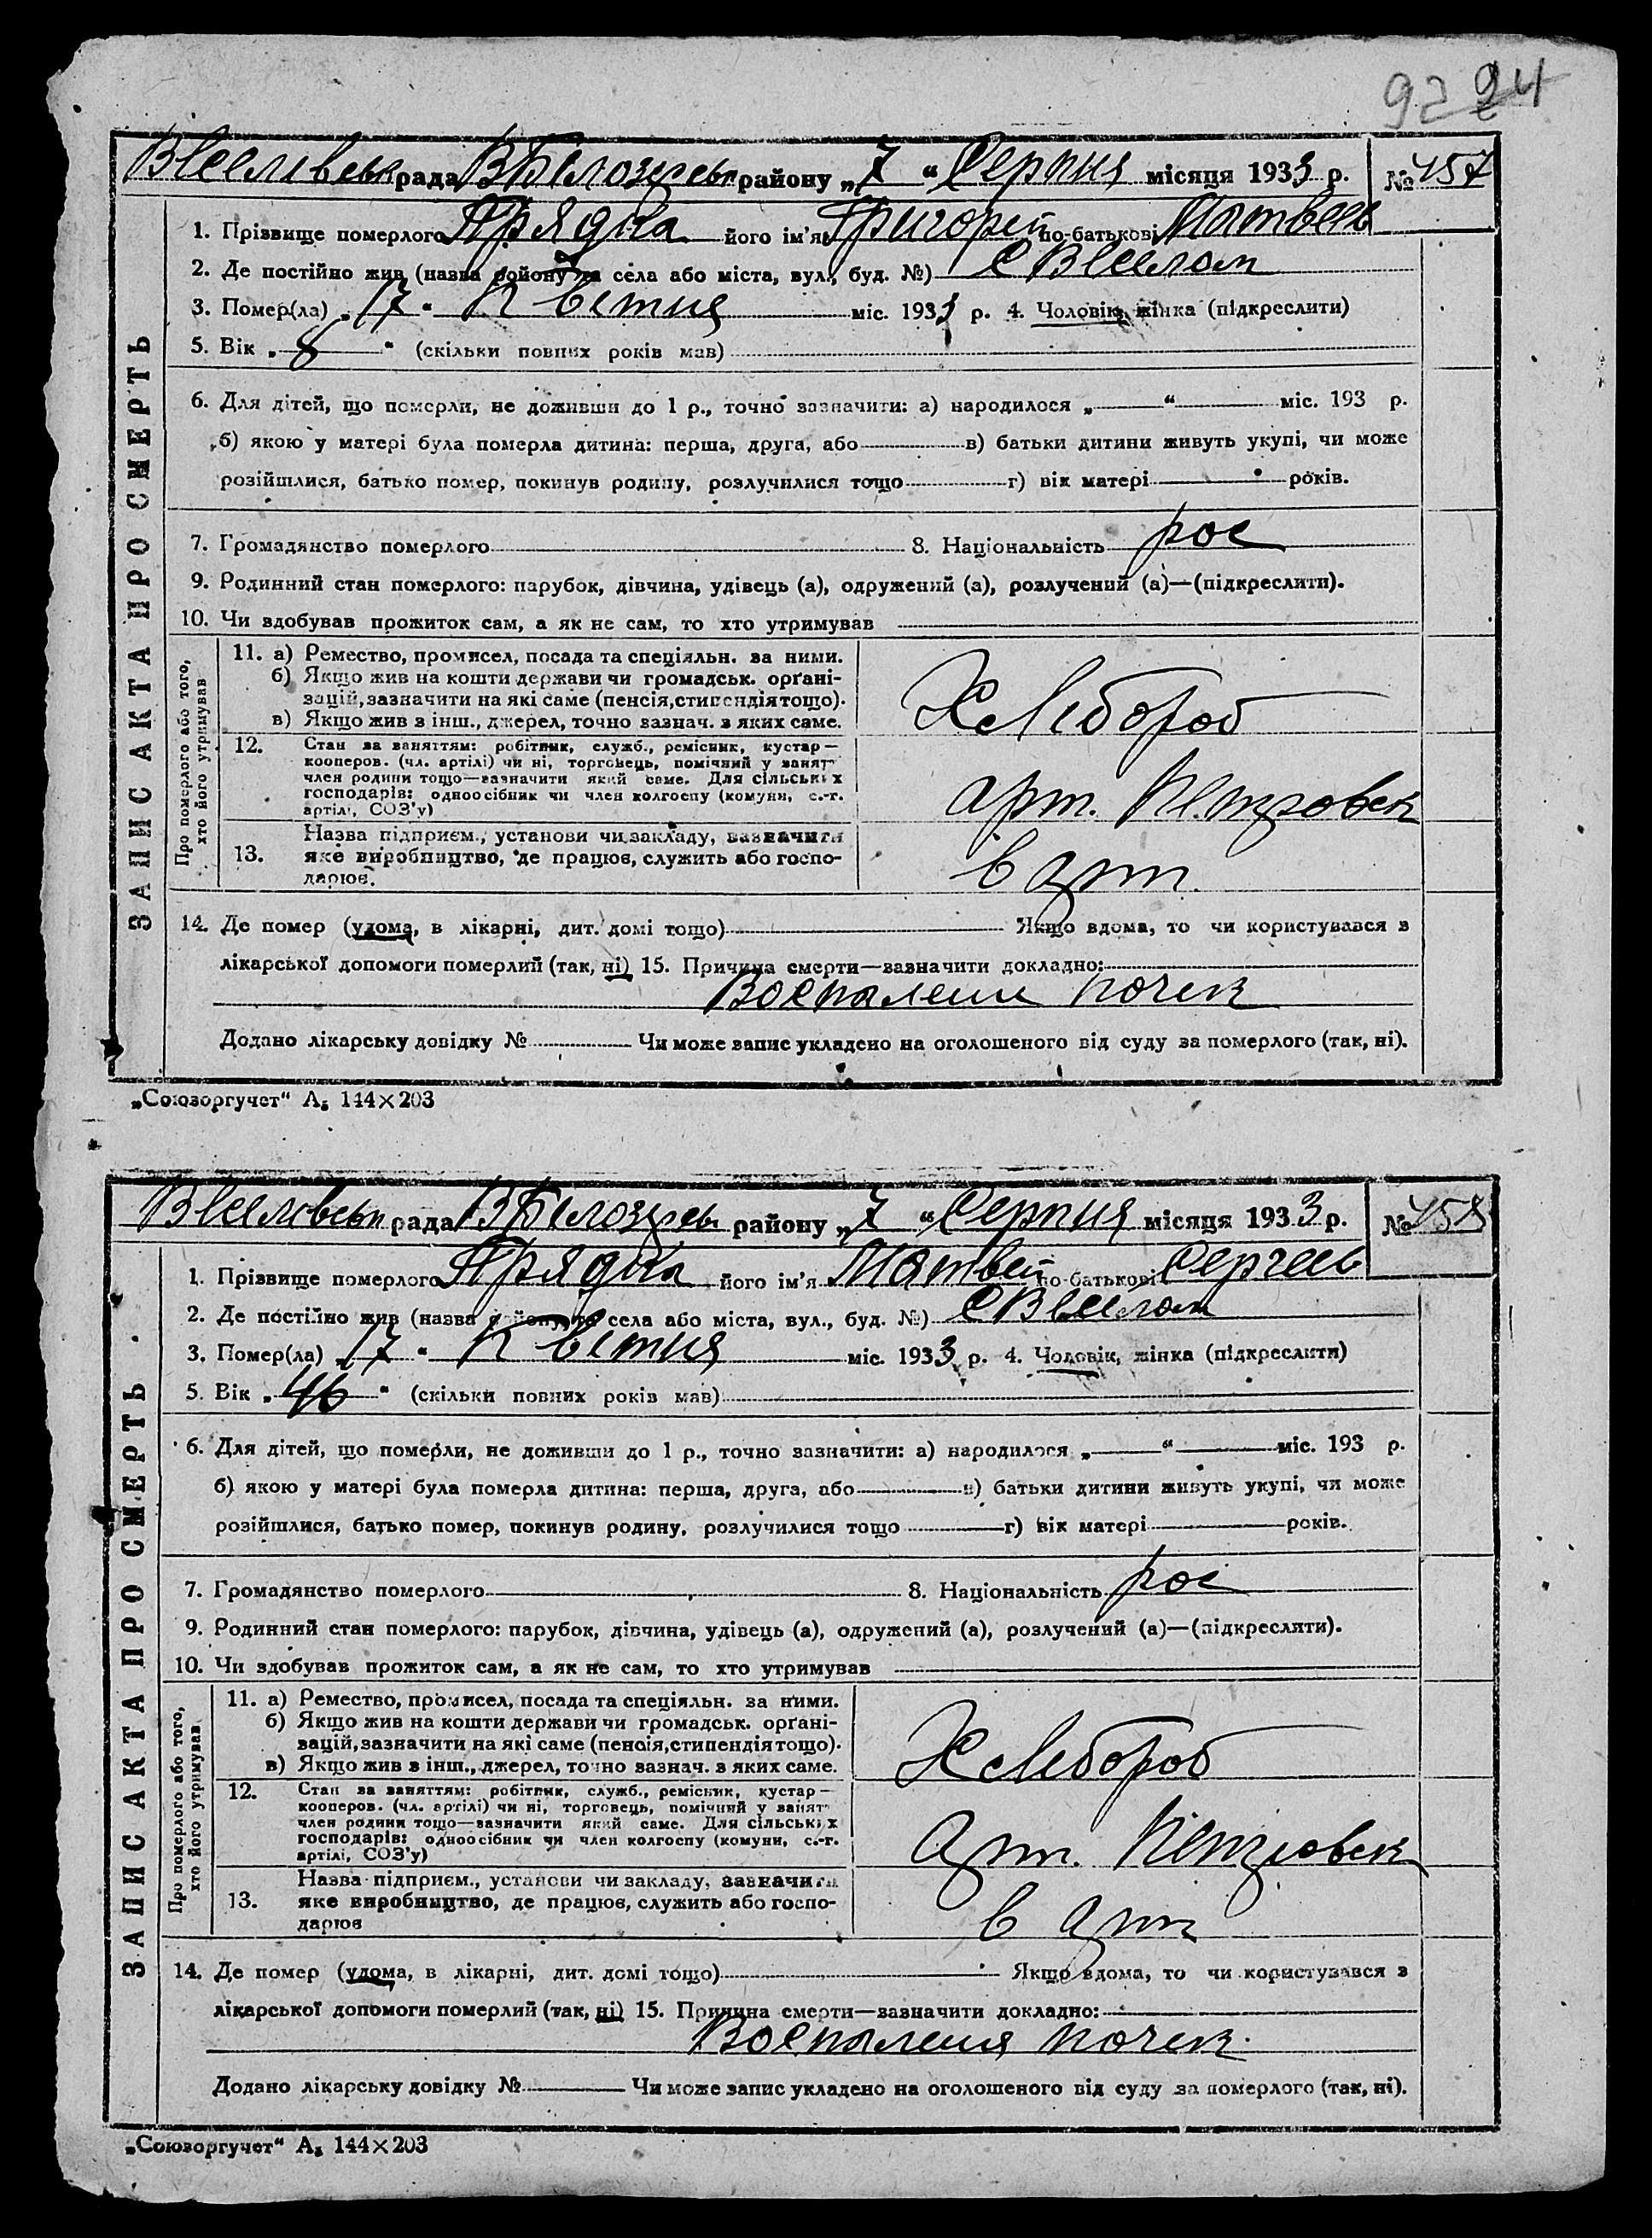 92 24
Веселівськ рада ВБілозірськ району „7“ Серпня місяця 1933 р. № 457
1. Прізвище померлого Прядка його ім'я Григорей по-батькові Матвеев
2. Де постійно жив (назва району та села або міста, вул., буд. №) с Веселом
3. Помер(ла) „17“ Квітня міс. 1933 р. 4. Чоловік, жінка (підкреслити)
5. Вік „8“ (скільки повних років мав)
6. Для дітей, що померли, не доживши до 1 р., точно зазначити: а) народилося „ “ міс. 193 р.
б) якою у матері була померла дитина: перша, друга, або в) батьки дитини живуть укупі, чи може
розійшлися, батько помер, покинув родину, розлучилися тощо г) вік матері років.
7. Громадянство померлого 8. Національність рос
9. Родинний стан померлого: парубок, дівчина, удівець (а), одружений (а), розлучений (а)—(підкреслити).
10. Чи здобував прожиток сам, а як не сам, то хто утримував
ЗАПИС АКТА ПРО СМЕРТЬ
Про померлого або того,
хто його утримував
11. а) Ремество, промисел, посада та спеціяльн. за ними.
б) Якщо жив на кошти держави чи громадськ. орґані-
зацій, зазначити на які саме (пенсія, стипендія тощо).
в) Якщо жив з інш., джерел, точно зазнач. з яких саме.
Хлебороб
12. Стан за заняттям: робітник, служб., ремісник, кустар—
кооперов. (чл. артілі) чи ні, торговець, помічний у занят
член родини тощо—зазначити який саме. Для сільських
господарів: одноосібник чи член колгоспу (комуни, с.-г.
артілі, СОЗ'у)
арт. Петровск
13. Назва підприєм., установи чи закладу, зазначити
яке виробництво, де працює, служить або госпо-
дарює.
в арт.
14. Де помер (удома, в лікарні, дит. домі тощо) Якщо вдома, то чи користувався з
лікарської допомоги померлий (так, ні) 15. Причина смерти—зазначити докладно:
Воспаления почек
Додано лікарську довідку № Чи може запис укладено на оголошеного від суду за померлого (так, ні).
„Союзоргучет“ А5 144×203
Веселовськ рада ВБілозірськ району „7“ Серпня місяця 1933 р. № 458
1. Прізвище померлого Прядка його ім'я Матвей по-батькові Сергеев
2. Де постійно жив (назва району та села або міста, вул., буд. №) с Веселом
3. Помер(ла) „17“ Квітня міс. 1933 р. 4. Чоловік, жінка (підкреслити)
5. Вік „46“ (скільки повних років мав)
6. Для дітей, що померли, не доживши до 1 р., точно зазначити: а) народилося „ “ міс. 193 р.
б) якою у матері була померла дитина: перша, друга, або в) батьки дитини живуть укупі, чи може
розійшлися, батько помер, покинув родину, розлучилися тощо г) вік матері років.
7. Громадянство померлого 8. Національність рос
9. Родинний стан померлого: парубок, дівчина, удівець (а), одружений (а), розлучений (а)—(підкреслити).
10. Чи здобував прожиток сам, а як не сам, то хто утримував
ЗАПИС АКТА ПРО СМЕРТЬ
Про померлого або того,
хто його утримував
11. а) Ремество, промисел, посада та спеціяльн. за ними.
б) Якщо жив на кошти держави чи громадськ. орґані-
зацій, зазначити на які саме (пенсія, стипендія тощо).
в) Якщо жив з інш., джерел, точно зазнач. з яких саме.
Хлебороб
12. Стан за заняттям: робітник, служб., ремісник, кустар—
кооперов. (чл. артілі) чи ні, торговець, помічний у занят
член родини тощо—зазначити який саме. Для сільських
господарів: одноосібник чи член колгоспу (комуни, с.-г.
артілі, СОЗ'у)
арт. Петровск
13. Назва підприєм., установи чи закладу, зазначити
яке виробництво, де працює, служить або госпо-
дарює
в арт
14. Де помер (удома, в лікарні, дит. домі тощо) Якщо вдома, то чи користувався з
лікарської допомоги померлий (так, ні) 15. Причина смерти—зазначити докладно:
Воспаления почек.
Додано лікарську довідку № Чи може запис укладено на оголошеного від суду за померлого (так, ні).
„Союзоргучет“ А5 144×203